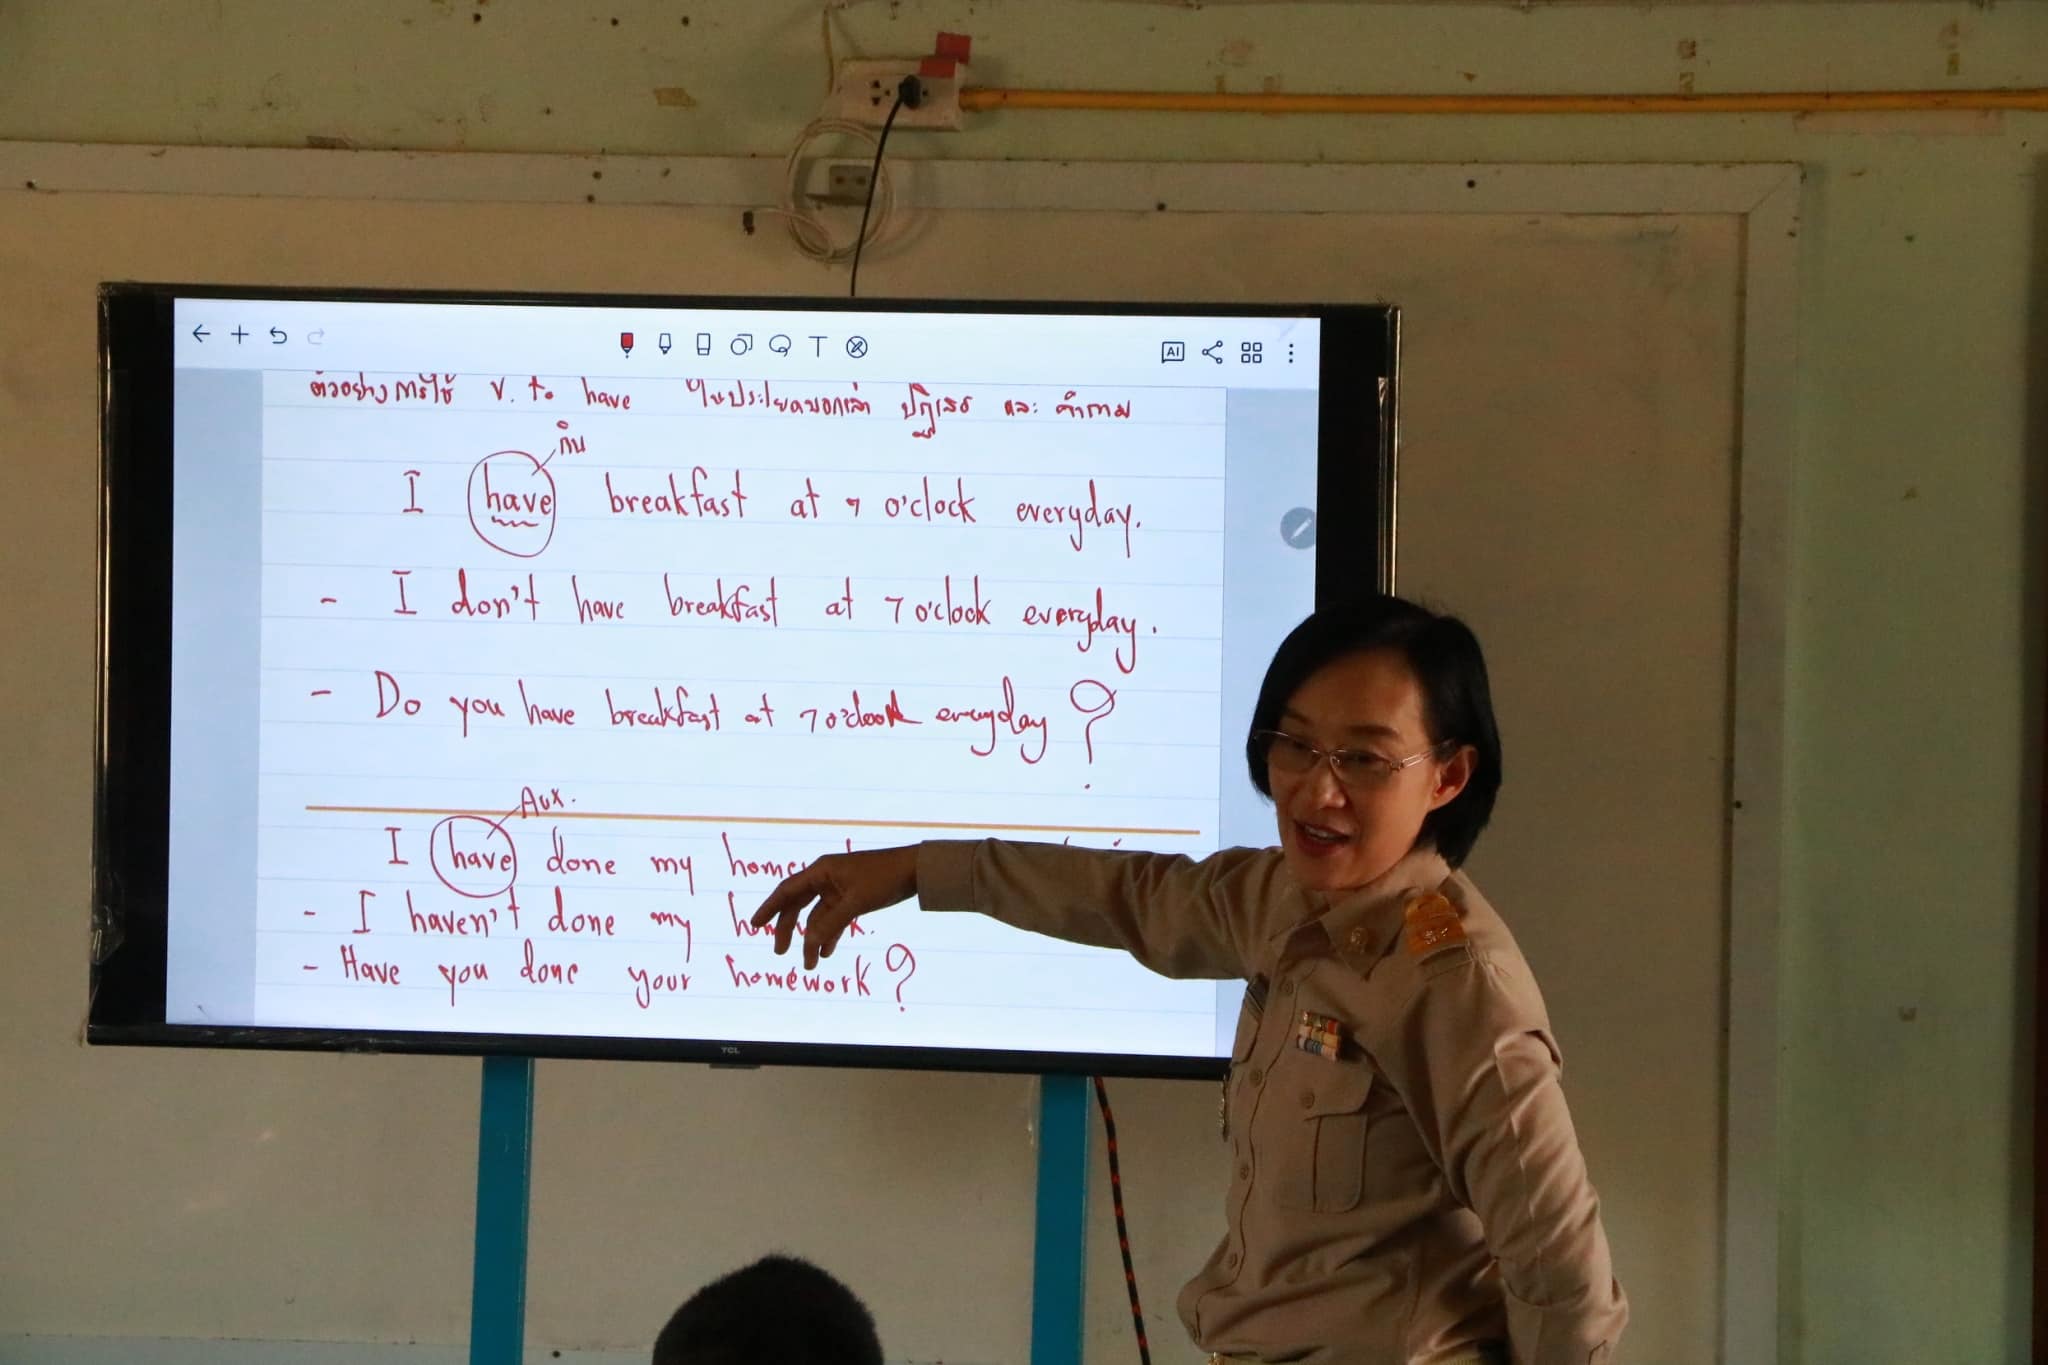 AI
ตัวอย่างการใช้ V. to have ในประโยคบอกเล่า ปฏิเสธ และ คำถาม
กิน
I have breakfast at 7 o'clock everyday.
- I don't have breakfast at 7 o'clock everyday.
- Do you have breakfast at 7 o'clock everyday?
Aux.
I have done my
- I haven't done my
- Have you done your homework?
TCL